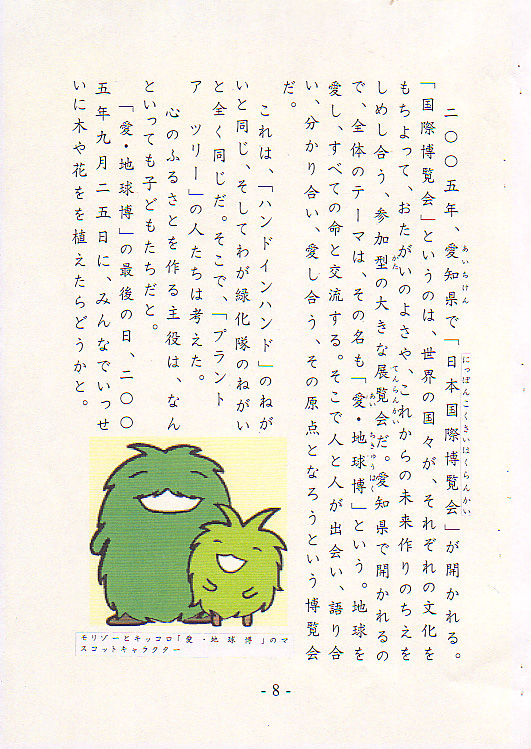 二〇〇五年、愛知県で「日本国際博覧会」が開かれる。
あいちけん
にっぽんこくさいはくらんかい
「国際博覧会」というのは、世界の国々が、それぞれの文化を
もちよって、おたがいのよさや、これからの未来作りのちえを
しめし合う、参加型の大きな展覧会だ。愛知県で開かれるの
がた
てんらんかい
で、全体のテーマは、その名も「愛・地球博」という。地球を
あい
ちきゅうはく
愛し、すべての命と交流する。そこで人と人が出会い、語り合
い、分かり合い、愛し合う、その原点となろうという博覧会
だ。
これは、「ハンドインハンド」のねが
いと同じ、そしてわが緑化隊のねがい
と全く同じだ。そこで、「プラント
ア ツリー」の人たちは考えた。
心のふるさとを作る主役は、なん
といっても子どもたちだと。
「愛・地球博」の最後の日、二〇〇
五年九月二五日に、みんなでいっせ
いに木や花をを植えたらどうかと。
モリゾーとキッコロ「愛・地球博」のマ
スコットキャラクター
- 8 -